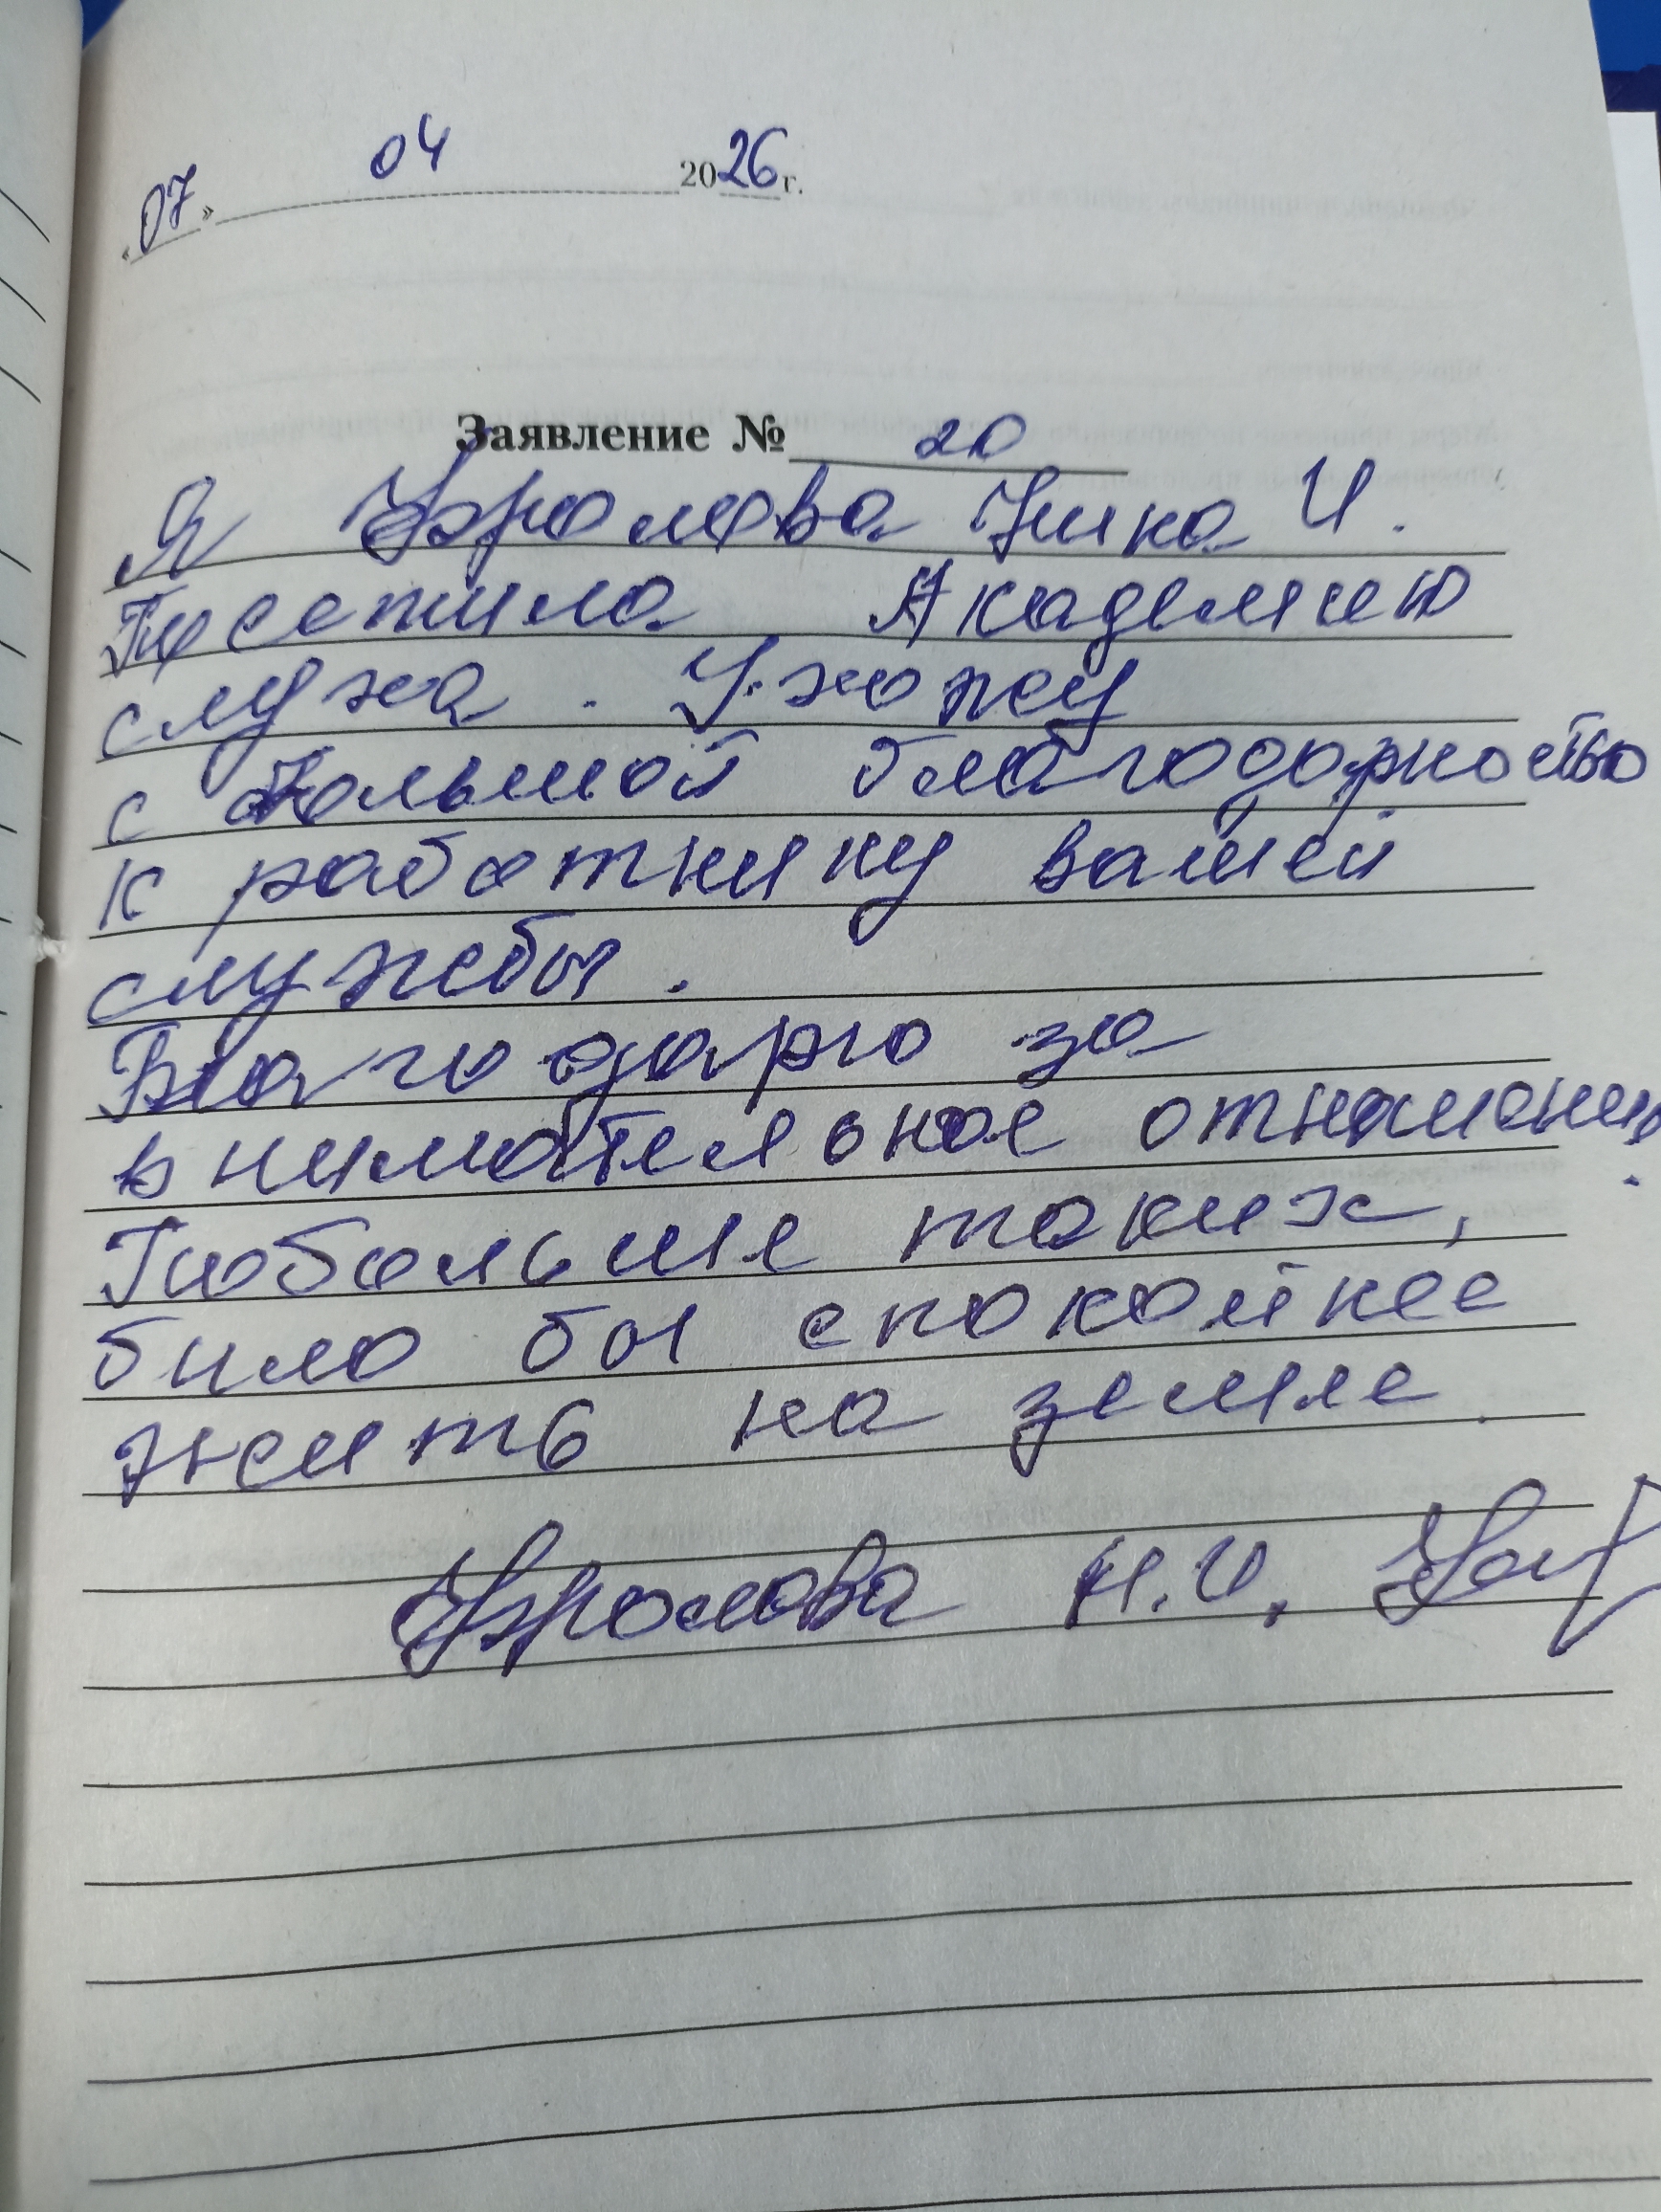 «07» 04 2026 г.
Заявление № 20
Я Фролова Нина И.
Посетила Академию
слуха. Ухожу
с большой благодарностью
к работнику вашей
службы.
Благодарю за
внимательное отношение.
Побольше таких,
было бы спокойнее
жить на земле.
Фролова Н.И.